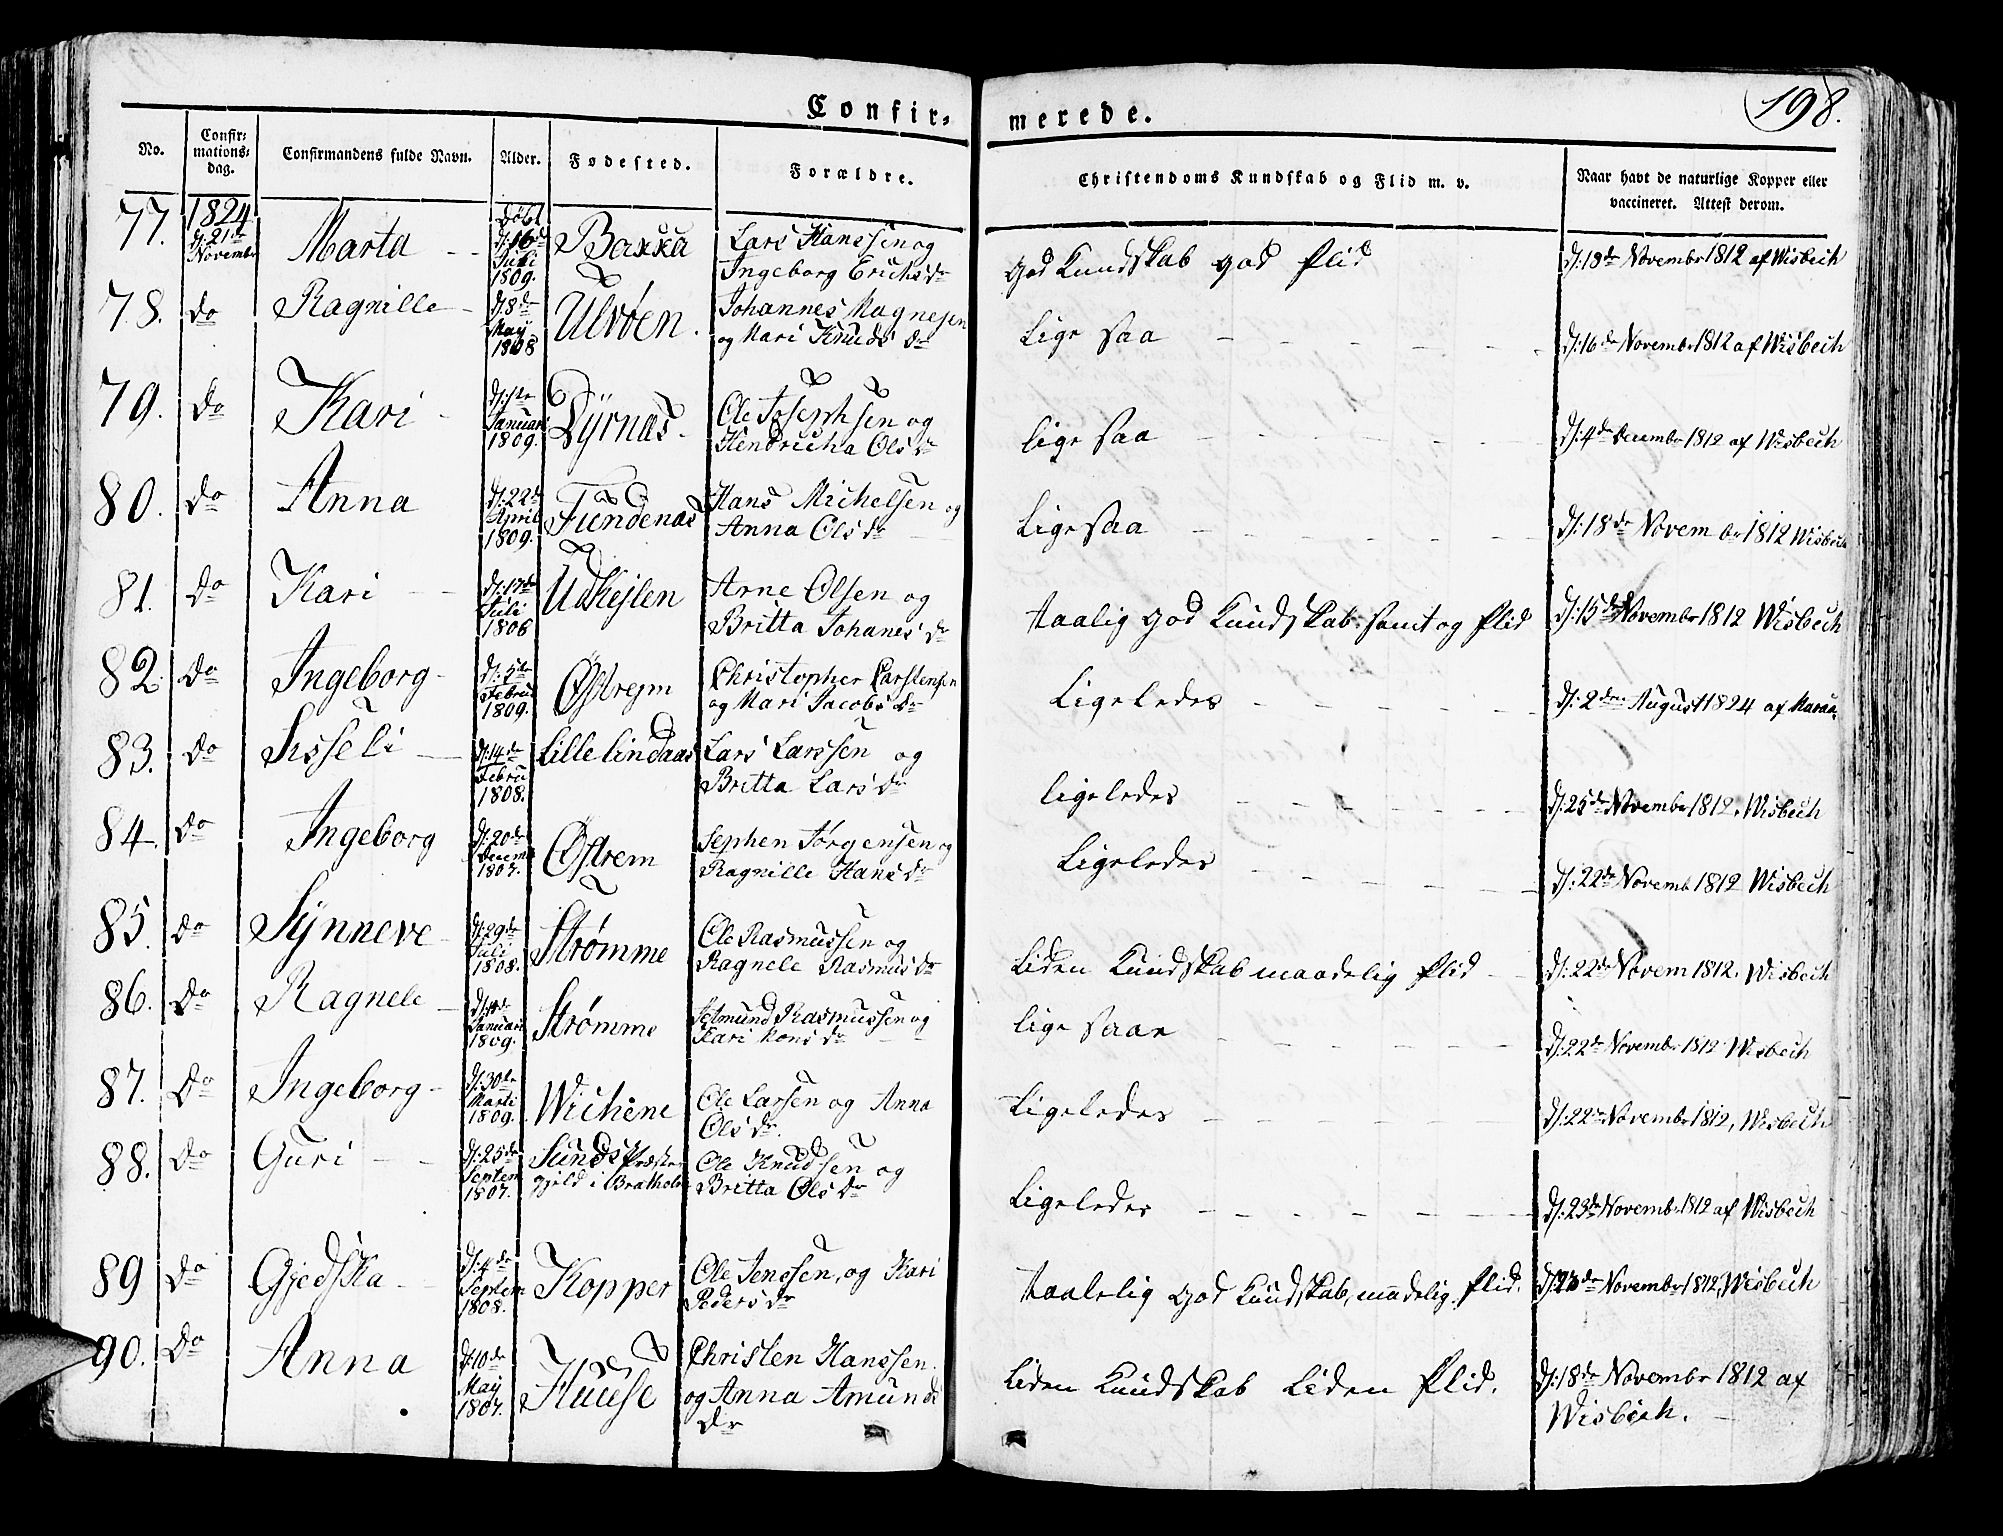 Confir-
merede.
198.
No.
Confir-
mations-
dag.
Confirmandens fulde Navn.
Alder.
Fødested.
Forældre.
Christendoms Kundskab og Flid m. v.
Naar havt de naturlige Kopper eller
vaccineret. Attest derom.
77.
1824
d: 21de
Novembr
Marta
Døbt
d: 16de
Juli
1809.
Bakka
Lars Hanssen og
Ingeborg Erichsdr
god Kundskab god flid
d: 18de Novembr 1812 af Wisbech
78.
do
Ragnille
d: 8de
Maij
1808
Ulvøen.
Johannes Magnesen
og Mari Knuds dr
Lige saa
d: 16de Novembr 1812 af Wisbech
79.
do
Kari
d: 1te
Januari
1809.
Dÿrnæs.
Ole Josephsen og
Hendricha Olsdr
lige saa
d: 4de Decembr 1812 af Wisbech
80.
do
Anna
d: 22de
April
1809.
Tundenæs
Hans Michelsen og
Anna Olsdr
Ligesaa
d: 18de Novembr 1812 Wisbech
81.
do
Kari
d: 17de
Juli
1806
Udkejlen
Arne Olsen og
Britta Johanesdr
taalig god Kundskab samt og flid
d: 15de Novembr 1812 Wisbech
82.
do
Ingeborg
d: 5te
Febru
1809.
Østrejm
Christopher Carstensen
og Mari Jacobsdr
Ligeledes
d: 2den August 1824 af
83.
do
Sisseli
d: 14de
Febru
1808.
Lille lindaas
Lars Larssen og
Britta Larsdr
ligeledes
d: 25de Novembr 1812. Wisbech
84.
do
Ingeborg
d: 20de
Decem
1807.
Østrem
Sephen Jørgensen og
Ragnille Hansdr
Ligeledes
d: 22de Novembr 1812 Wisbech
85.
do
Synneve
d: 29de
Juli
1808.
Strømme
Ole Rasmussen og
Ragnele Rasmusdr
Liden Kundskab maadelig flid
d: 22de Novem 1812. Wisbech
86.
do
Ragnele
d: 4de
Januari
1809.
Strømme
Rasmussen og
Kari Monsdr
lige saae
d: 22de Novembr 1812 Wisbech
87.
do
Ingeborg
d: 30de
Marti
1809.
Wichene
Ole Larsen og Anna
Olsdr.
Ligeledes
d: 22de Novembr 1812, Wisbech
88.
do
Guri
d: 25de
Septem
1807.
Sunds Præste-
gjeld i Bratholm
Ole Knudsen og
Britta Olsdr
Ligeledes
d: 23de Novembr 1812 af Wisbech
89
do
Gjedska
d: 4de
Septem
1808.
Kopper
Ole Jenssen, og Kari
Pedersdr
taalelig god Kundskab, maadelig flid.
d: 23de Novembr 1812, Wisbech
90.
do
Anna
d: 10de
Maij
1807.
Huuse
Christen Hanssen.
og Anna Amunds
dr
Liden Kundskab Liden flid.
d: 18de Novembr 1812 af
Wisbech.